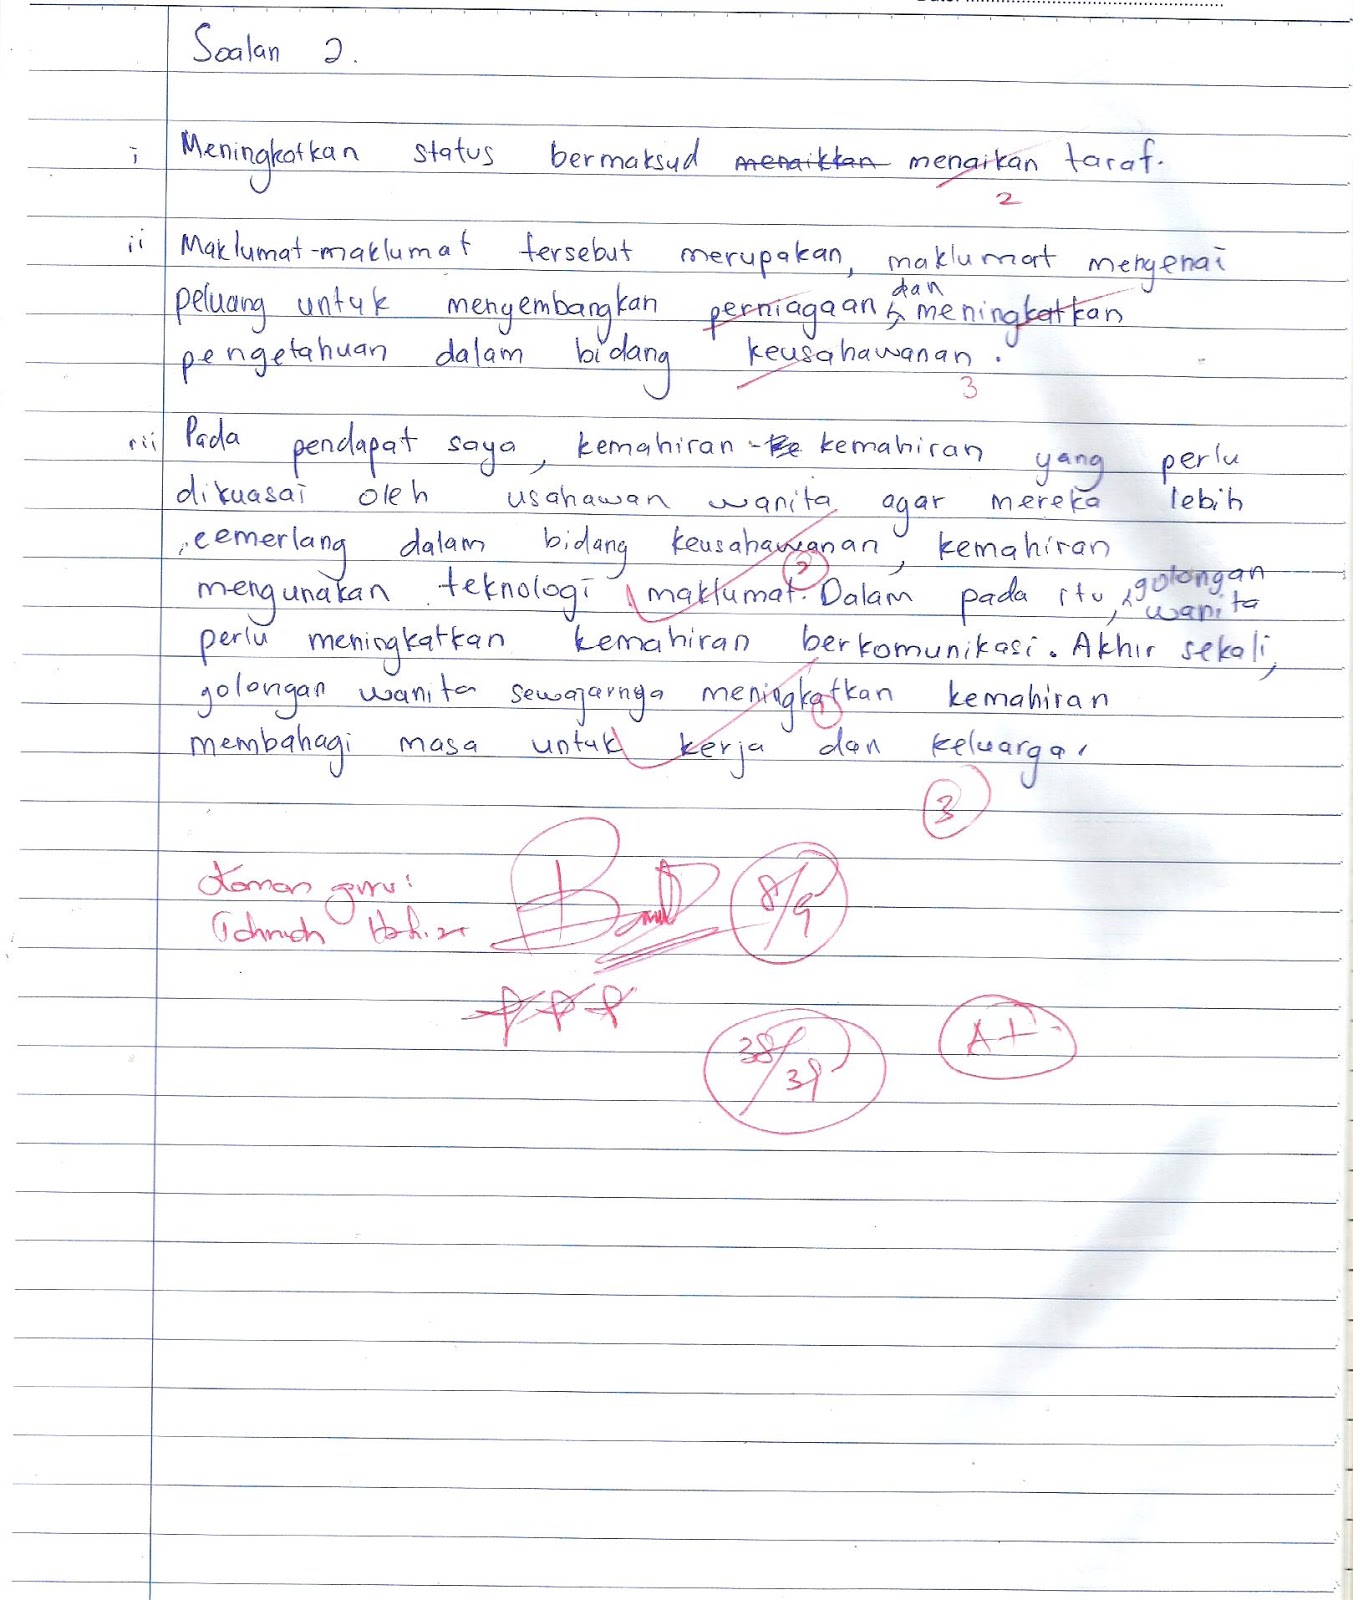 Soalan 2.
i Meningkatkan status bermaksud menaikkan menaikan taraf.
2
ii Maklumat-maklumat tersebut merupakan, maklumat mengenai
peluang untuk mengembangkan perniagaan dan meningkatkan
pengetahuan dalam bidang keusahawanan.
3
iii Pada pendapat saya, kemahiran-ke kemahiran yang perlu
dikuasai oleh usahawan wanita agar mereka lebih
cemerlang dalam bidang keusahawanan, kemahiran
2
mengunakan teknologi maklumat. Dalam pada itu, golongan wanita
perlu meningkatkan kemahiran berkomunikasi. Akhir sekali,
golongan wanita sewajarnya meningkatkan kemahiran
1
membahagi masa untuk kerja dan keluarga.
3
guru:
8/9
38/39
A+